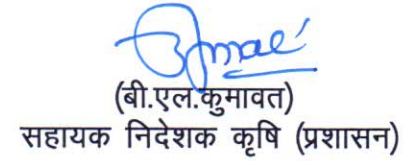 (बी.एल.कुमावत)
सहायक निदेशक कृषि (प्रशासन)